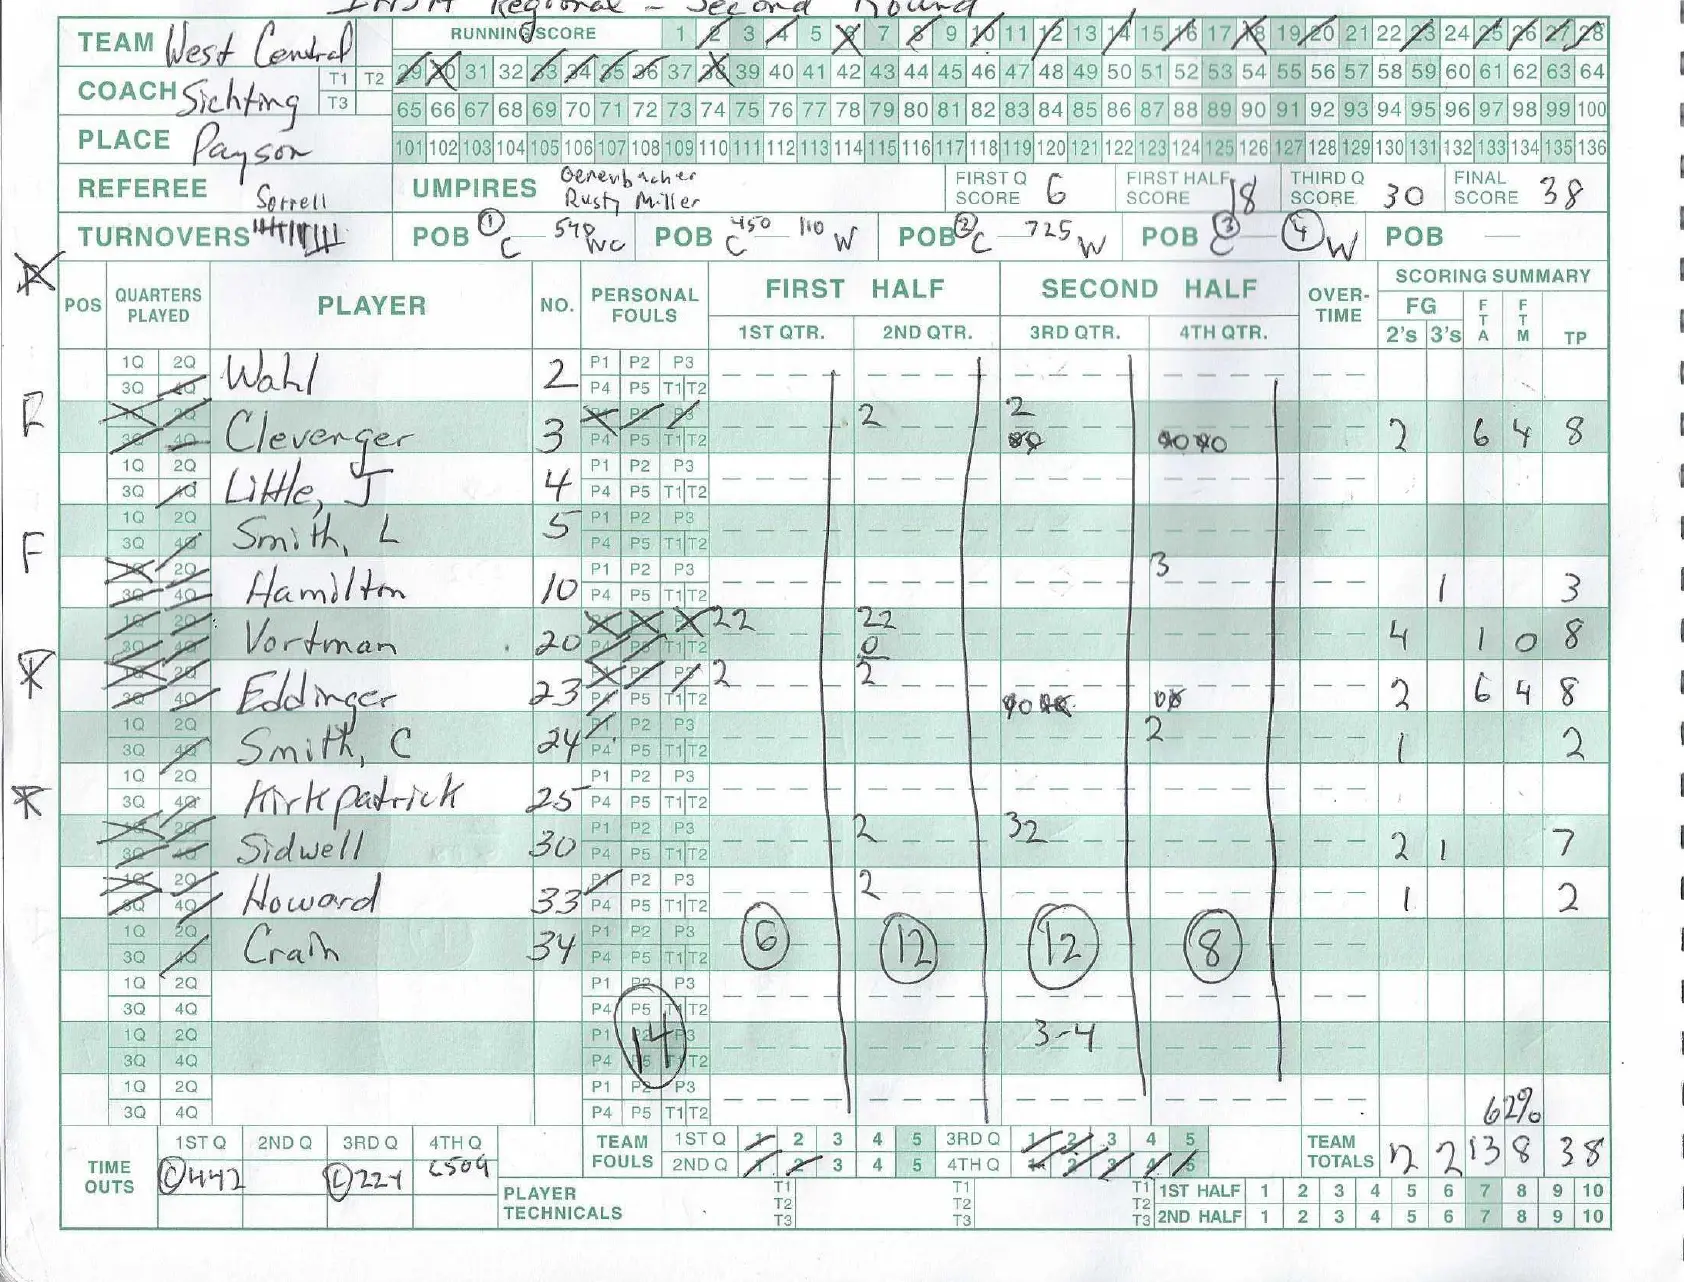 Regional - Second Round
TEAM West Central
RUNNING SCORE 1 2 3 4 5 6 7 8 9 10 11 12 13 14 15 16 17 18 19 20 21 22 23 24 25 26 27 28
29 30 31 32 33 34 35 36 37 38 39 40 41 42 43 44 45 46 47 48 49 50 51 52 53 54 55 56 57 58 59 60 61 62 63 64
COACH Sichting T1 T2 T3
65 66 67 68 69 70 71 72 73 74 75 76 77 78 79 80 81 82 83 84 85 86 87 88 89 90 91 92 93 94 95 96 97 98 99 100
PLACE Payson
101 102 103 104 105 106 107 108 109 110 111 112 113 114 115 116 117 118 119 120 121 122 123 124 125 126 127 128 129 130 131 132 133 134 135 136
REFEREE Sorrell UMPIRES Genenbacher Rusty Miller FIRST Q SCORE 6 FIRST HALF SCORE 18 THIRD Q SCORE 30 FINAL SCORE 38
TURNOVERS POB 1 C 540 WC POB C 450 110 W POB 2 C 725 W POB 3 C 4 W POB
POS QUARTERS PLAYED PLAYER NO. PERSONAL FOULS FIRST HALF SECOND HALF OVER-TIME SCORING SUMMARY
1ST QTR. 2ND QTR. 3RD QTR. 4TH QTR. FG 2'S 3'S FTA FTM TP
1Q 2Q Wahl 2 P1 P2 P3
3Q 4Q P4 P5 T1 T2
1Q 2Q Clevenger 3 P1 P2 P3 2 2 2 6 4 8
3Q 4Q P4 P5 T1 T2
1Q 2Q Little, J 4 P1 P2 P3
3Q 4Q P4 P5 T1 T2
1Q 2Q Smith, L 5 P1 P2 P3
3Q 4Q P4 P5 T1 T2
1Q 2Q Hamilton 10 P1 P2 P3 3 1 3
3Q 4Q P4 P5 T1 T2
1Q 2Q Vortman 20 P1 P2 P3 22 22 0 4 1 0 8
3Q 4Q P4 P5 T1 T2
1Q 2Q Eddinger 23 P1 P2 P3 2 2 2 6 4 8
3Q 4Q P4 P5 T1 T2
1Q 2Q Smith, C 24 P1 P2 P3 2 1 2
3Q 4Q P4 P5 T1 T2
1Q 2Q Kirkpatrick 25 P1 P2 P3
3Q 4Q P4 P5 T1 T2
1Q 2Q Sidwell 30 P1 P2 P3 2 32 2 1 7
3Q 4Q P4 P5 T1 T2
1Q 2Q Howard 33 P1 P2 P3 2 1 2
3Q 4Q P4 P5 T1 T2
1Q 2Q Crain 34 P1 P2 P3 6 12 12 8
3Q 4Q P4 P5 T1 T2
1Q 2Q P1 P2 P3
3Q 4Q P4 P5 T1 T2
1Q 2Q P1 P2 P3 14 3-4
3Q 4Q P4 P5 T1 T2
1Q 2Q P1 P2 P3
3Q 4Q P4 P5 T1 T2 62%
TIME OUTS 1ST Q 2ND Q 3RD Q 4TH Q TEAM FOULS 1ST Q 1 2 3 4 5 3RD Q 1 2 3 4 5 TEAM TOTALS 12 2 13 8 38
C 442 C 224 C509 2ND Q 1 2 3 4 5 4TH Q 1 2 3 4 5
PLAYER TECHNICALS T1 T2 T3 T1 T2 T3 T1 T2 T3 1ST HALF 1 2 3 4 5 6 7 8 9 10
2ND HALF 1 2 3 4 5 6 7 8 9 10